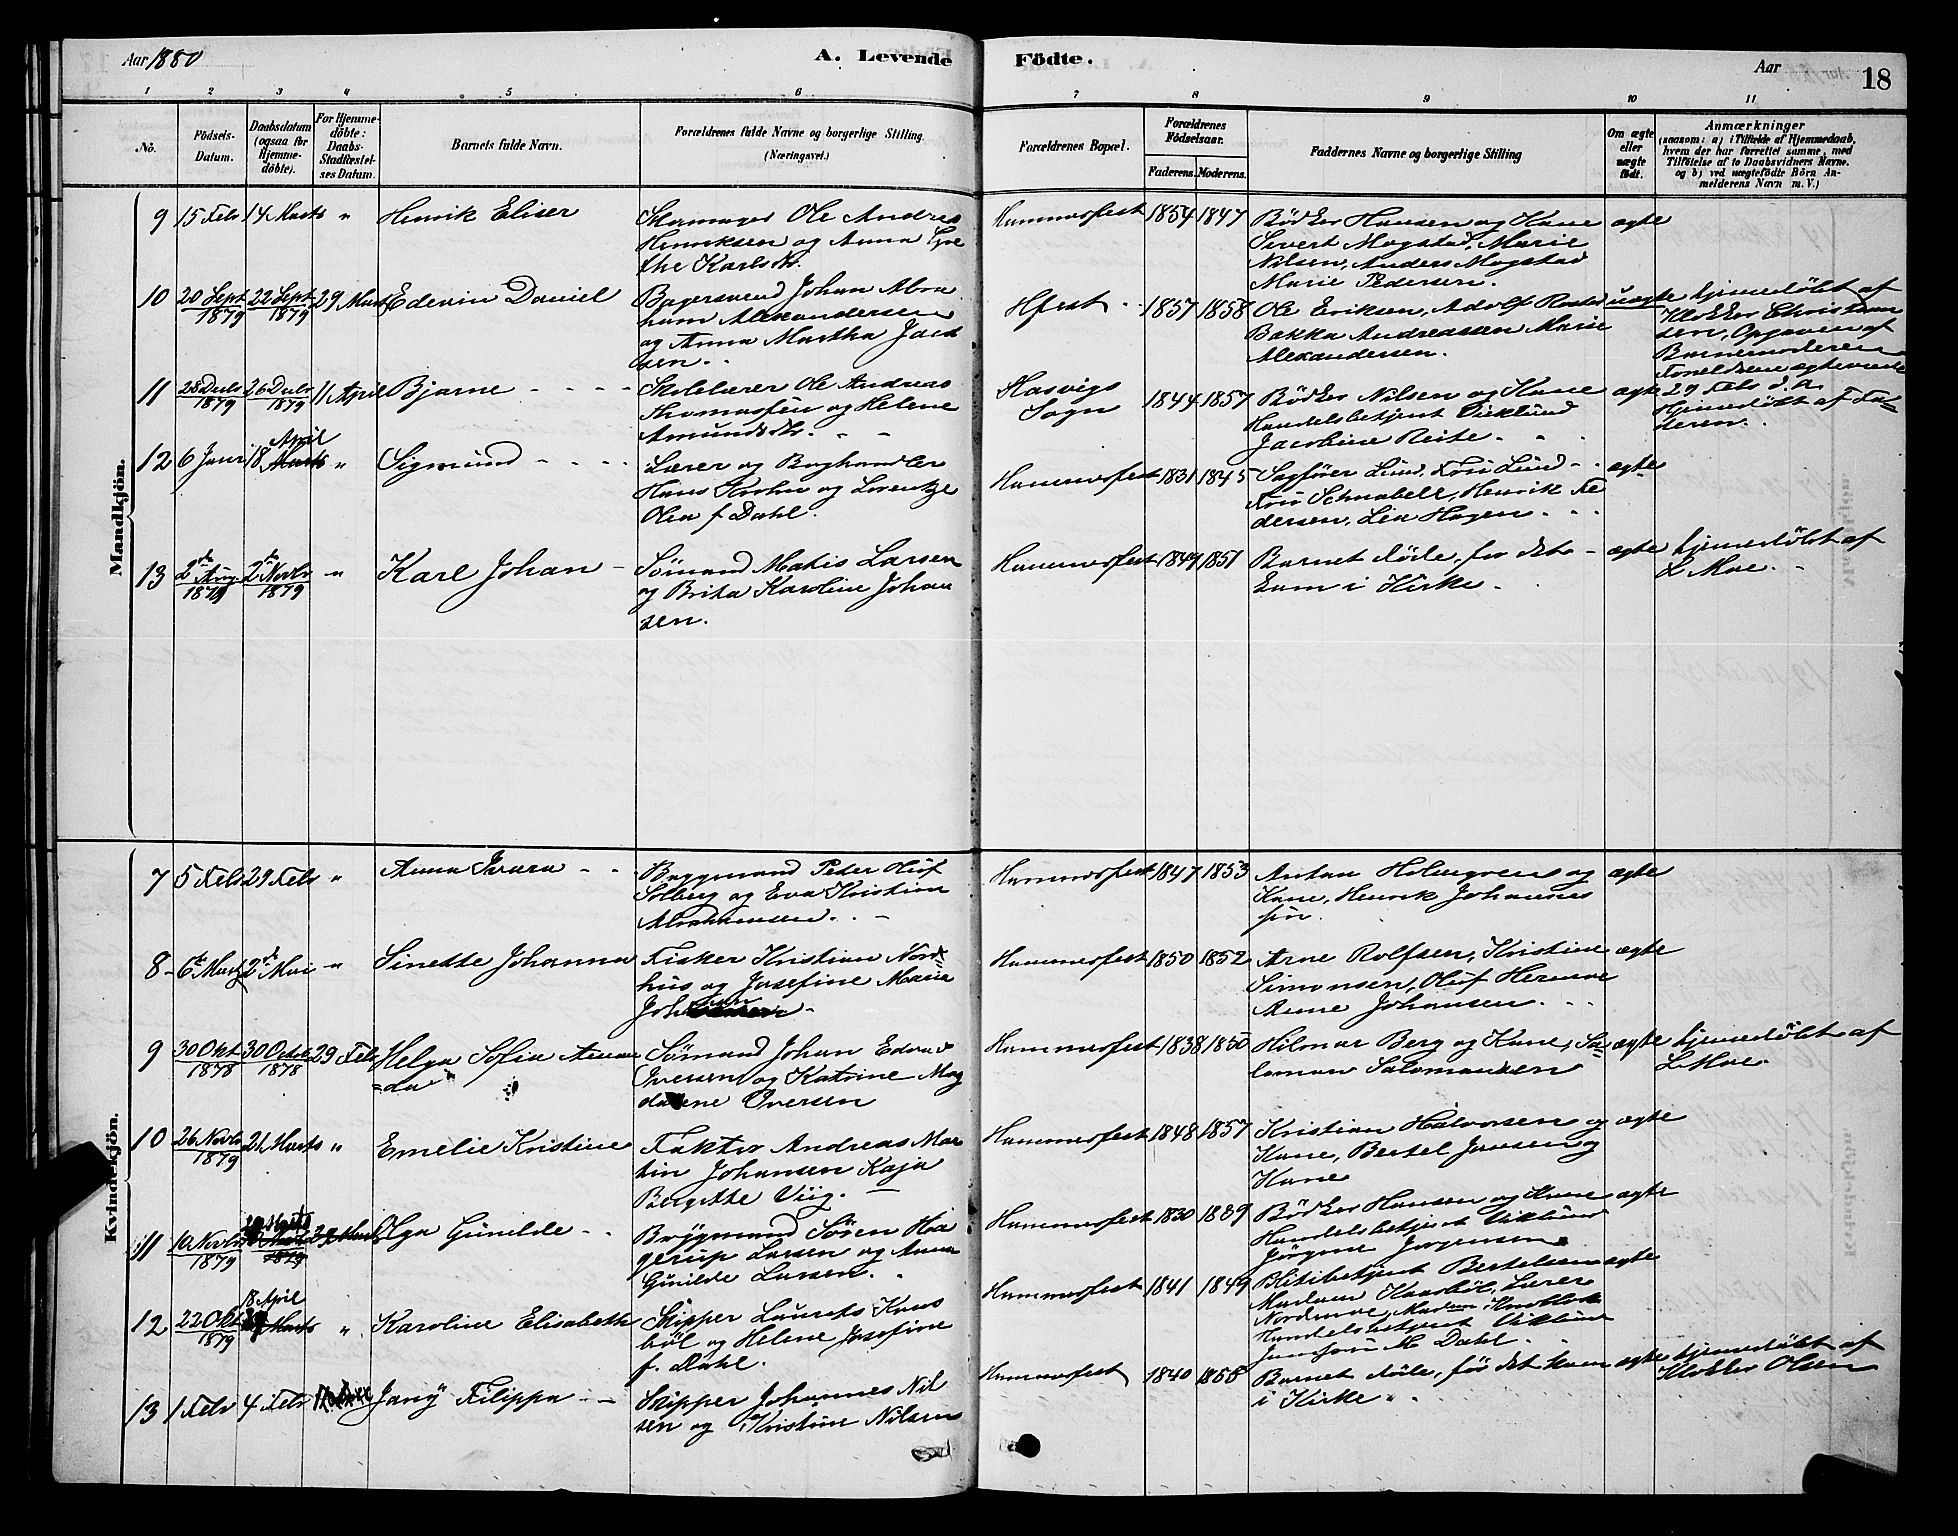 Aar 1880
A. Levende
Födte.
Aar
18
1 2 3 4 5 6 7 8 9 10 11
No.
Födsels-
Datum.
Daabsdatum
(ogsaa for
Hjemme-
döbte).
For Hjemme-
döbte:
Daabs-
Stadfæstel-
ses Datum.
Barnets fulde Navn.
Forældrenes fulde Navne og borgerlige Stilling.
(Næringsvei.)
Forældrenes Bopæl.
Forældrenes
Födselsaar.
Faderens. Moderens.
Faddernes Navne og borgerlige Stilling
Om ægte
eller
uægte
födt.
Anmærkninger
(saasom: a) i Tilfælde af Hjemmedaab,
hvem der har forrettet samme, med
Tilföielse af to Daabsvidners Navne.
og b) ved uægtefödte Börn An-
melderens Navn m. V.)
Mandkjön.
9 15 Febr 14 Marts " Henrik Eliser
Ole Andreas
Henriksen og Anna Gre
the Karlsdtr.
Hammerfest 1854 1847
Bødker Hansen og Kone
Sivert Mogstad, Marie
Nilsen, Anders Mogstad
Marie Pedersen.
ægte
10 20 Sept 1879 22 Sept 1879 29 Marts Edevin Daniel
Bagersvend Johan Abra
ham Alexandersen
og Anna Martha Jack
sen.
Hfest 1857 1858
Ole Eriksen, Adolf
Bakka Andreassen Marie
Alexandersen.
uægte
hjemedøbt af
Klokker Christian
sen, Opgaven af
Barnemoderen
Forældrene ægteviede
29 Febr d. A.
11 1879 26 Decbr 1879 11 April Bjarne
Skolelærer Ole Andreas
Thomassen og Helene
Amundsdtr.
Hasvigs
Sogn
1844 1857
Bødker Nilsen og Kone
Handelsbetjent Viklund
Jacobine Reite.
ægte
Hjemedøbt af Fa-
deren.
12 6 Januar 18 April Marts " Sigmund
Lærer og Boghandler
Hans Krohn og Lorentze
Olea f Dahl.
Hammerfest 1831 1845
Sagfører Lund, Fru Lund
Fru Schnabell, Henrik Pe
dersen, Lea Hagen
ægte
13 2 Aug 1879 2 Novbr 1879 " Karl Johan
Sømand Matis Larsen
og Brita Karoline Johan
sen.
Hammerfest 1849 1851
Barnet døde, før det
kom i Kirke
ægte
hjemedøbt af
L Moe.
Kvindekjön.
7 5 Febr 29 Febr " Anna
Byggmand Peter Oluf
Solberg og Eva Kristian
Hammerfest 1847 1853
Anton Holmgren og
Kone, Henrik Johannes
sen.
ægte
8 6 Marts 2 Mai " Sinette Johanna
Fisker Kristian Nord
hus og Josefine Maria
Hammerfest 1850 1852
Arne Rolfsen, Kristine
Simonsen, Oluf
Anne Johansen.
ægte
9 30 Okt 1878 30 Octob 1878 29 Febr Helga Sofia Aman
=da
Sømand Johan Edvard
Iversen og Katrine Mag
dalene Iversen
Hammerfest 1838 1850
Hilmar Berg og Kone, Sa-
lomon Salomonsen
ægte
hjemedøbt af
L Moe.
10 26 Novbr 1879 21 Marts " Emelie Kristine
Faktor Andreas Mar
tin Johansen Kaja
Bergitte Viig.
Hammerfest 1848 1857
Kristian Halvorsen og
Kone, Bertel Jensen og
Kone
ægte
11 10 Novbr 1879 Olga Gunilde
Brygmand Søren Ha
gerup Larsen og Anna
Gunilde Larsen.
Hammerfest 1830 1839
Bødker Hansen og Kone
Handelsbetjent Viklund
Jørgine Jørgensen
ægte
12 22 Okt 1879 18 April Marts " Karoline Elisabeth
Skipper Laurets Kaas
bøl og Helene Josefine
f. Dahl.
Hammerfest 1841 1849
Bertelsen
Madam Kaasbøl, Lærer
Handelsbetjent Viklund
M Dahl.
ægte
13 1 Febr 4 Febr Jany Filippa
Skipper Johannes Nil
sen og Kristine Nilsen
Hammerfest 1840 1858
Barnet døde, før det kom
i Kirke
ægte
hjemedøbt af
Klokker Olsen